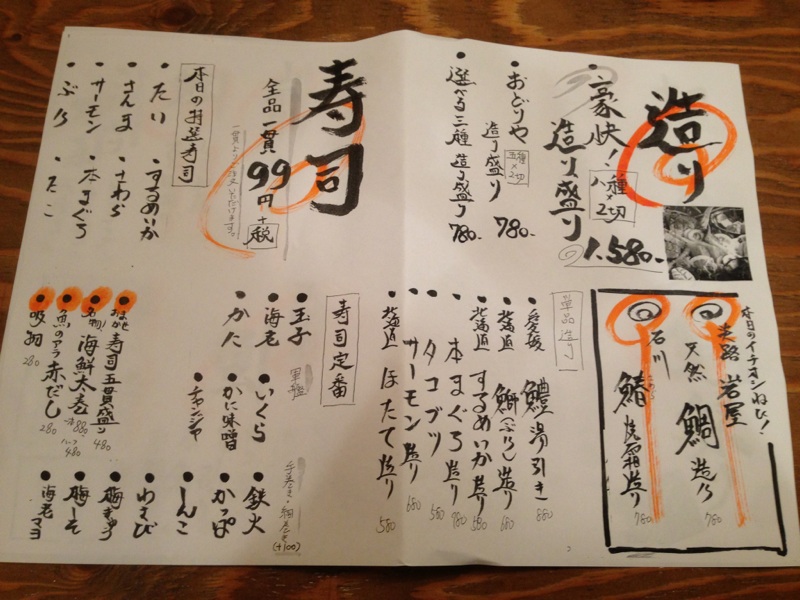 造り
・豪快!
八種×2切
造り盛り
1.580-
・おどりや
造り盛り
五種×2切
780-
・選べる三種 造り盛り 780-
本日のイチオシねび!
淡路 岩屋
天然 鯛 造り
780
石川
鰆 焼霜造り
780
単品造り
・愛媛 鱧湯引き 880
・北海道 鰤(ぶり)造り 680
・北海道 するめいか造り 580
・本まぐろ造り 980
・タコブツ 580
・サーモン造り 680
・北海道 ほたて造り 580
寿司
全品一貫 99円+税
一貫よりご注文いただけます。
本日の特選寿司
・たい
・するめいか
・さんま
・さわら
・サーモン
・本まぐろ
・ぶり
・たこ
寿司定番
・玉子
・海老
・かに
軍艦
・いくら
・かに味噌
・チャンジャ
手巻き・細巻き(+100)
・鉄火
・かっぱ
・しんこ
・わさび
・梅きゅう
・梅しそ
・海老マヨ
・おまかせ 寿司五貫盛り 480
・名物! 海鮮太巻 一本 880 ハーフ 480
・魚のアラ赤だし 280
・吸物 280